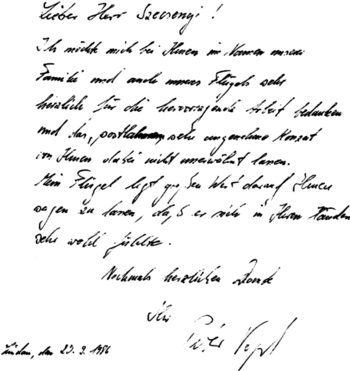 Lieber Herr Szecsenyi!
Ich möchte mich bei Ihnen im Namen meiner
Familie und auch meines Flügels sehr
herzlich für die hervorragende Arbeit bedanken
und das, sehr angenehme Konzert
von Ihnen dabei nicht unerwähnt lassen.
Mein Flügel legt großen Wert darauf Ihnen
sagen zu lassen, daß er sich in Ihren Händen
sehr wohl fühlte.
Nochmals herzlichen Dank
Ihr
Peter
den 23.3.1986